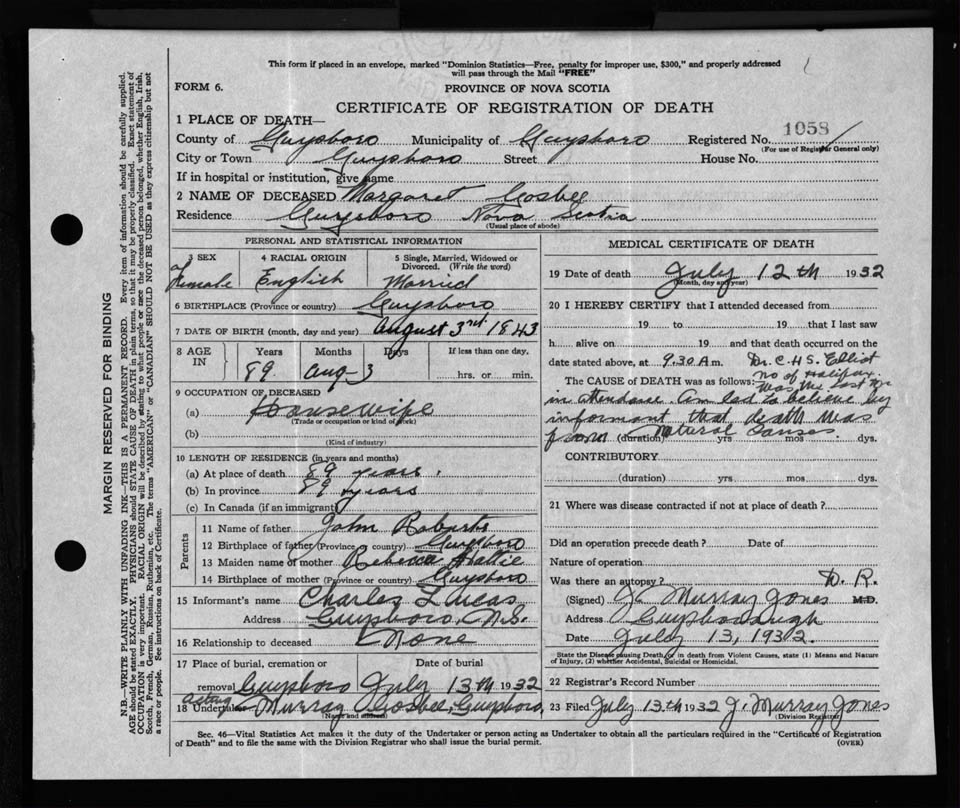 This form if placed in an envelope, marked "Dominion Statistics—Free, penalty for improper use, $300," and properly addressed
will pass through the Mail "FREE"
FORM 6.
PROVINCE OF NOVA SCOTIA
CERTIFICATE OF REGISTRATION OF DEATH
1 PLACE OF DEATH—
County of Guysboro Municipality of Guysboro Registered No. 1058
(For use of Registrar General only)
City or Town Guysboro Street House No.
If in hospital or institution, give name
2 NAME OF DECEASED Margaret Gosbee
Residence Guysboro Nova Scotia
(Usual place of abode)
PERSONAL AND STATISTICAL INFORMATION
3 SEX 4 RACIAL ORIGIN 5 Single, Married, Widowed or
Divorced. (Write the word)
Female English Married
6 BIRTHPLACE (Province or country) Guysboro
7 DATE OF BIRTH (month, day and year) August 3rd 1843
8 AGE IN Years Months Days If less than one day.
89 Aug-3 hrs. or min.
9 OCCUPATION OF DECEASED
(a) Housewife
(Trade or occupation or kind of work)
(b)
(Kind of industry)
10 LENGTH OF RESIDENCE (in years and months)
(a) At place of death 89 years.
(b) In province 89 years
(c) In Canada (if an immigrant)
Parents
11 Name of father John Roberts
12 Birthplace of father (Province or country) Guysboro
13 Maiden name of mother Rebecca
14 Birthplace of mother (Province or country) Guysboro
15 Informant's name Charles Lucas
Address Guysboro, N.S.
16 Relationship to deceased None
17 Place of burial, cremation or Date of burial
removal Guysboro July 13th 1932
acting
18 Undertaker Murray Gosbee, Guysboro,
(Name and address)
MEDICAL CERTIFICATE OF DEATH
19 Date of death July 12th 1932
(Month, day and year)
20 I HEREBY CERTIFY that I attended deceased from
19 to 19 that I last saw
h alive on 19 and that death occurred on the
date stated above, at 9.30 Am. Dr. C.H.S. Elliot
The CAUSE OF DEATH was as follows: of Halifax.
was the last
in attendance. Am led to believe by
informant that death was
from Natural Causes.
(duration) yrs mos dys.
CONTRIBUTORY
(duration) yrs mos dys.
21 Where was disease contracted if not at place of death?
Did an operation precede death? Date of
Nature of operation
Was there an autopsy? D. R.
(Signed) J. Murray Jones M.D.
Address
Date July 13, 1932.
State the Disease causing Death, or in death from Violent Causes, state (1) Means and Nature
of Injury, (2) whether Accidental, Suicidal or Homicidal.
22 Registrar's Record Number
23 Filed July 13th 1932 J. Murray Jones
(Division Registrar)
Sec. 46—Vital Statistics Act makes it the duty of the Undertaker or person acting as Undertaker to obtain all the particulars required in the "Certificate of Registration
of Death" and to file the same with the Division Registrar who shall issue the burial permit.
(OVER)
MARGIN RESERVED FOR BINDING
N.B.—WRITE PLAINLY WITH UNFADING INK—THIS IS A PERMANENT RECORD. Every item of information should be carefully supplied.
AGE should be stated EXACTLY. PHYSICIANS should STATE CAUSE OF DEATH in plain terms, so that it may be properly classified. Exact statement of
OCCUPATION is very important. RACIAL ORIGIN will be described by stating to what people or race the deceased person belonged, whether English, Irish,
Scotch, French, German, Russian, Ruthenian, etc. The terms "AMERICAN" or "CANADIAN" SHOULD NOT BE USED as they express citizenship but not
a race or people. See instructions on back of Certificate.